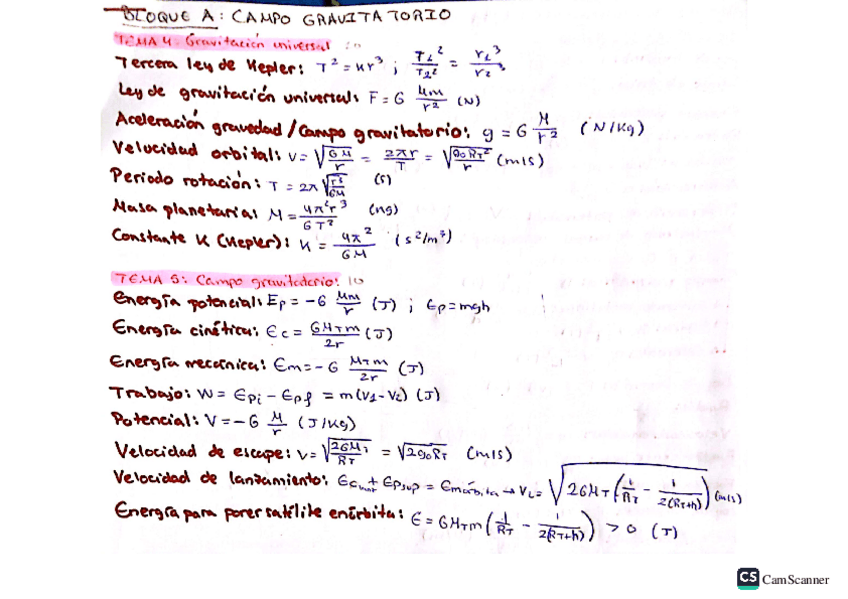 BLOQUE A: CAMPO GRAVITATORIO
TEMA 4: Gravitación universal 10
Tercera ley de Kepler: T² = Kr³ ; T₁²/T₂² = r₁³/r₂³
Ley de gravitación universal: F = G Mm/r² (N)
Aceleración gravedad/Campo gravitatorio: g = G M/r² (N/Kg)
Velocidad orbital: v = √(GM/r) = 2πr/T = √(g₀R_T²/r) (m/s)
Periodo rotación: T = 2π√(r³/GM) (s)
Masa planetaria: M = 4π²r³/GT² (Kg)
Constante K (Kepler): K = 4π²/GM (s²/m³)
TEMA 5: Campo gravitatorio: 10
Energía potencial: Ep = -G Mm/r (J) ; Ep = mgh
Energía cinética: Ec = GM_Tm/2r (J)
Energía mecánica: Em = -G M_Tm/2r (J)
Trabajo: W = Epi - Epf = m(V₁-V₂) (J)
Potencial: V = -G M/r (J/Kg)
Velocidad de escape: v = √(2GM_T/R_T) = √(2g₀R_T) (m/s)
Velocidad de lanzamiento: Ec + Epsup = Emórbita → V_L = √(2GM_T(1/R_T - 1/2(R_T+h))) (m/s)
Energía para poner satélite en órbita: E = GM_Tm(1/R_T - 1/2(R_T+h)) > 0 (J)
CS CamScanner